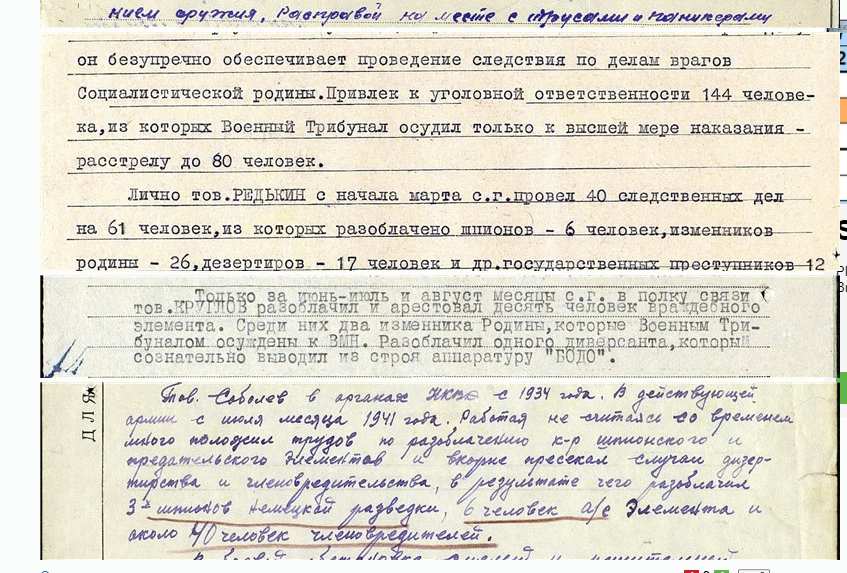 нием оружия, расправой на месте с трусами и паникерами
он безупречно обеспечивает проведение следствия по делам врагов
Социалистической родины.Привлек к уголовной ответственности 144 челове-
ка,из которых Военный Трибунал осудил только к высшей мере наказания -
расстрелу до 80 человек.
Лично тов.РЕДЬКИН с начала марта с.г.провел 40 следственных дел
на 61 человек,из которых разоблачено шпионов - 6 человек,изменников
родины - 26,дезертиров - 17 человек и др.государственных преступников 12
Только за июнь-июль и август месяцы с.г. в полку связи
тов.КРУГЛОВ разоблачил и арестовал десять человек враждебного
элемента. Среди них два изменника Родины,которые Военным Три-
буналом осуждены к ВМН. Разоблачил одного диверсанта,который
сознательно выводил из строя аппаратуру "БОДО".
ДЛЯ
Тов. Соболев в органах НКВД с 1934 года. В действующей
армии с июля месяца 1941 года. Работая не считаясь со временем
много положил трудов по разоблачению к-р шпионского и
предательского элементов и вкорне пресекал случаи дизер-
тирства и членовредительства, в результате чего разоблачил
3х шпионов немецкой разведки, 6 человек а/с элемента и
около 40 человек членовредителей.